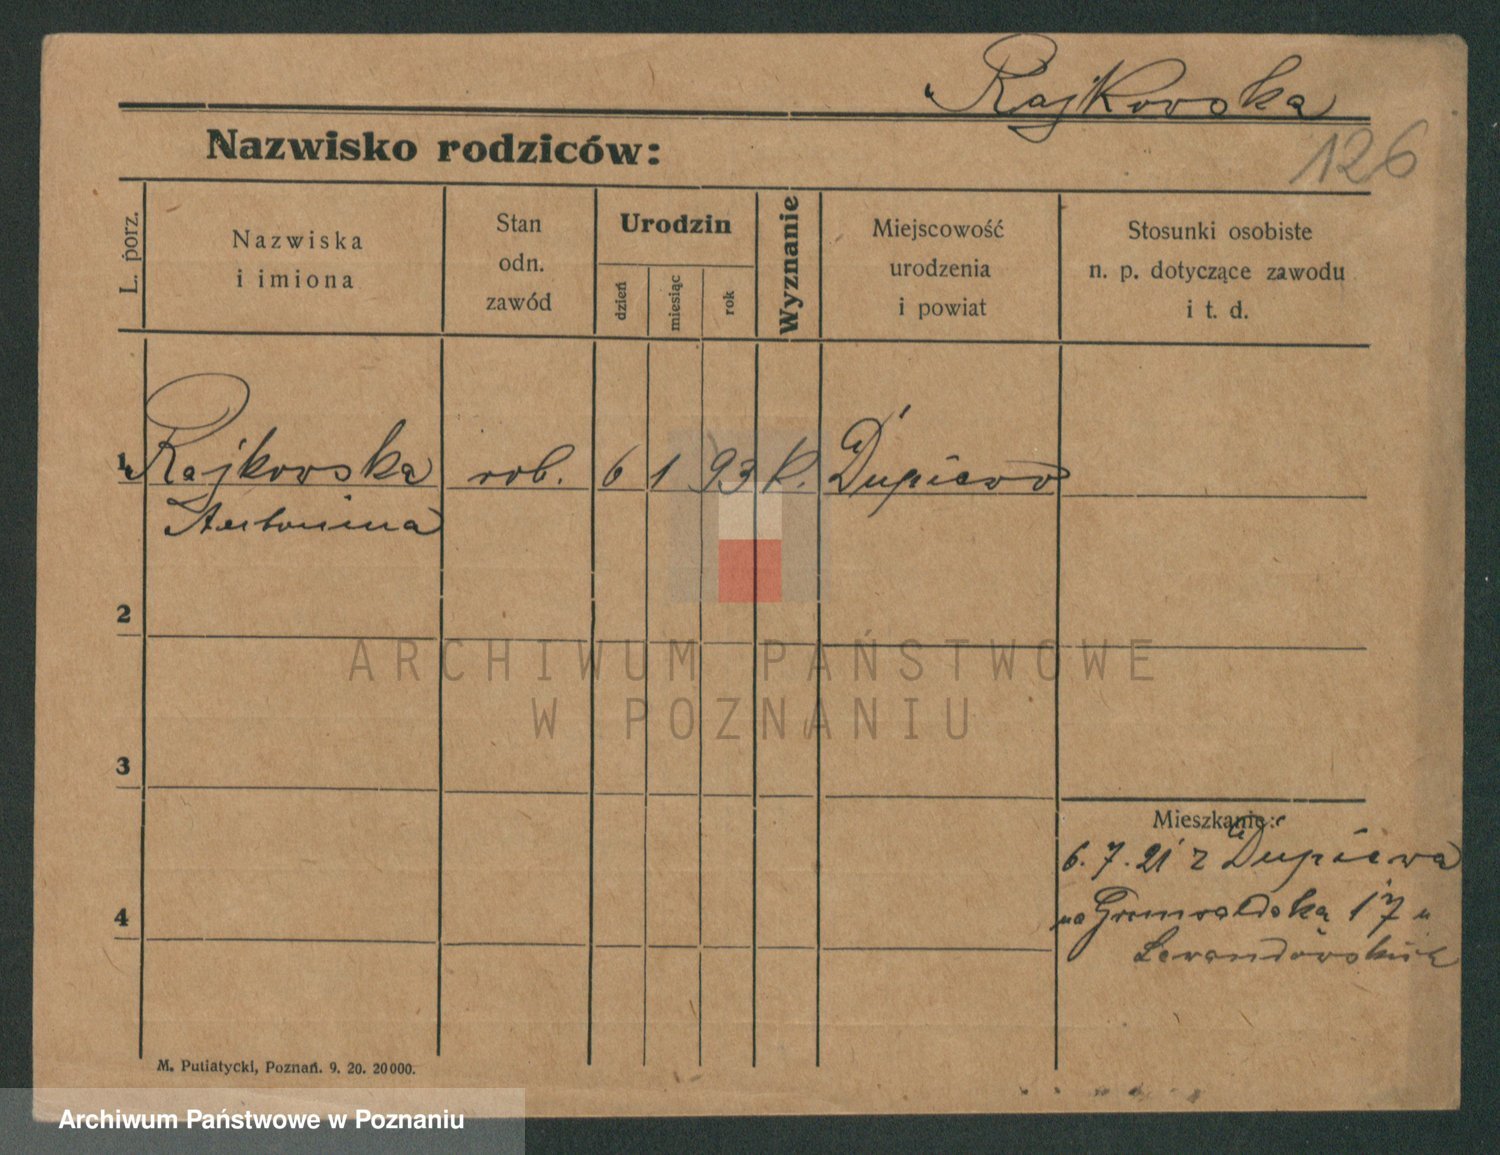 Rajkowska
Nazwisko rodziców:
126
L. porz.
Nazwiska
i imiona
Stan
odn.
zawód
Urodzin
dzień
miesiąc
rok
Wyznanie
Miejscowość
urodzenia
i powiat
Stosunki osobiste
n. p. dotyczące zawodu
i t. d.
1 Rajkowska rob. 6 1 93 k. Dupiewo
Antonina
2
3
4
ARCHIWUM PAŃSTWOWE
W POZNANIU
Mieszkanie:
6. 7. 21 z Dupiewa
na Grunwaldska 17 u
M. Putiatycki, Poznań. 9. 20. 20000.
Archiwum Państwowe w Poznaniu